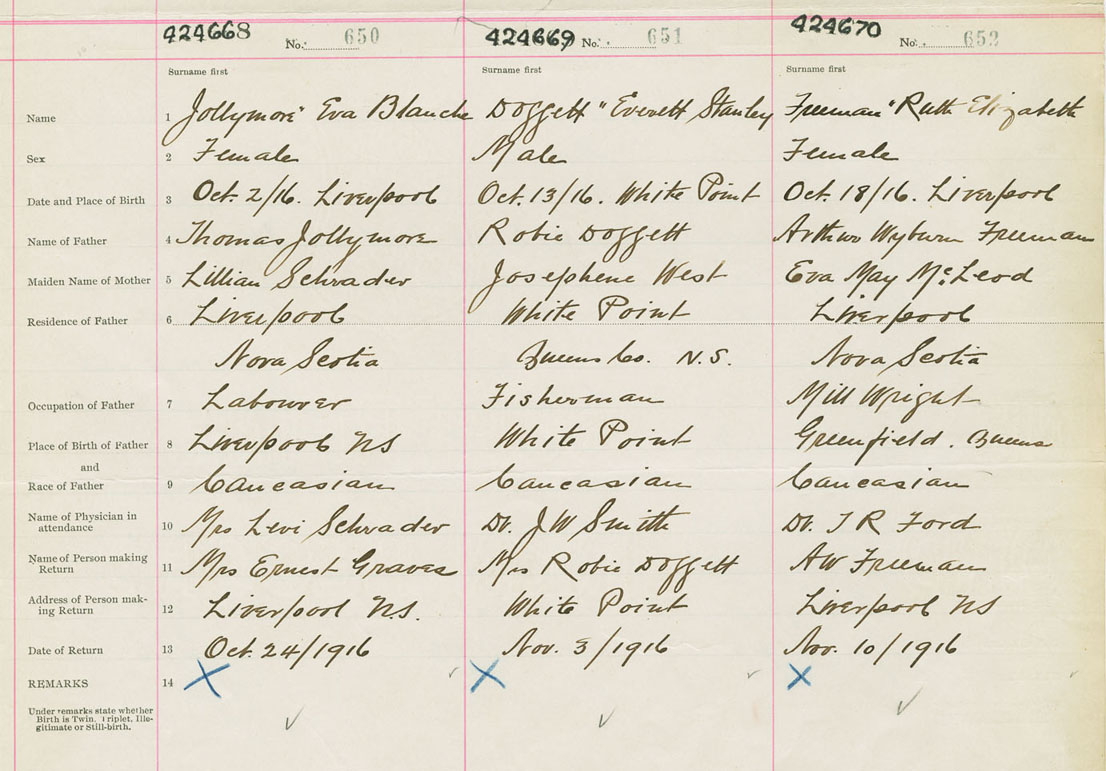 424668 No. 650 424669 No. 651 424670 No. 652
Surname first Surname first Surname first
Name 1 Jollymore " Eva Blanche Doggett " Everett Stanley Freeman " Ruth Elizabeth
Sex 2 Female Male Female
Date and Place of Birth 3 Oct. 2/16. Liverpool Oct. 13/16. White Point Oct. 18/16. Liverpool
Name of Father 4 Thomas Jollymore Robie Doggett Arthur Wyburn Freeman
Maiden Name of Mother 5 Lillian Schrader Josephene West Eva May Mc Leod
Residence of Father 6 Liverpool White Point Liverpool
Nova Scotia Queens Co. N.S. Nova Scotia
Occupation of Father 7 Labourer Fisherman Mill Wright
Place of Birth of Father 8 Liverpool NS White Point Greenfield. Queens
and
Race of Father 9 Caucasian Caucasian Caucasian
Name of Physician in
attendance 10 Mrs Levi Schrader Dr. J W Smith Dr. T R Ford
Name of Person making
Return 11 Mrs Ernest Graves Mrs Robie Doggett A W Freeman
Address of Person mak-
ing Return 12 Liverpool N.S. White Point Liverpool NS
Date of Return 13 Oct. 24/1916 Nov. 3/1916 Nov. 10/1916
REMARKS 14
Under remarks state whether
Birth is Twin, Triplet, Ille-
gitimate or Still-birth.